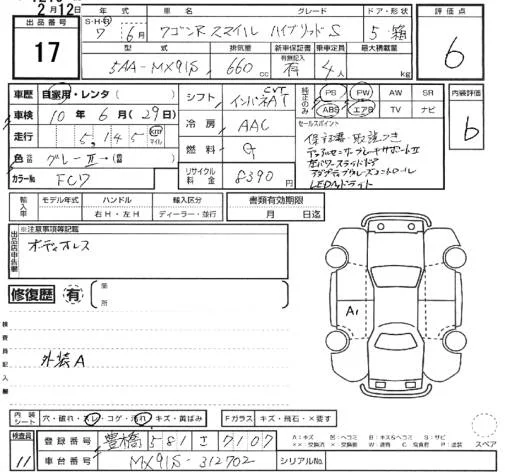 2月12日
出品番号
17
年式
グレード
ドア・形状
評価点
S・H・R
7年 6月
ワゴンRスマイル ハイブリッドS
5 箱
6
型式
排気量
新車保証書
乗車定員
最大積載量
5AA-MX91S
660cc
有無記入
有
4人
kg
車歴
自家用・レンタ( )
車検
10年 6月(29)日
走行
5,145 km マイル
色
グレーⅡ→( )
カラーNo
FCD
シフト
インパネAT
CVT
冷房
AAC
燃料
G
リサイクル料金
8390円
純正のみ
PS
PW
AW
SR
ABS
エアB
TV
ナビ
セールスポイント
保証書・取説つき
デュアルセンサーブレーキサポートⅡ
左パワースライドドア
アダプティブクルーズコントロール
LEDヘッドライト
内装評価
6
輸入車
モデル年式
ハンドル
輸入区分
右H・左H
ディーラー・並行
書類有効期限
月 日迄
出品店申告欄
※注意事項等記載
オーディオレス
修復歴
有
箇所
検査員記入欄
外装A
A1
内装シート
穴・破れ・スレ・コゲ・汚れ・キズ・黄ばみ
Fガラス
キズ・飛石・×要す
検査員
11
登録番号
豊橋 581 さ 7107
車台番号
MX91S-312702
シリアルNo.
A:キズ
U:ヘコミ
B:キズ&ヘコミ
S:サビ
スペア